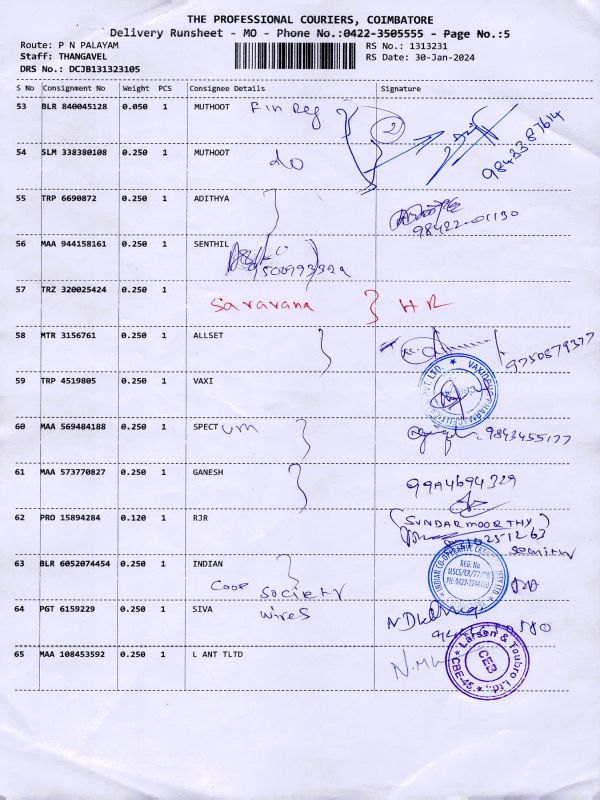 THE PROFESSIONAL COURIERS, COIMBATORE
Delivery Runsheet - MO - Phone No.:0422-3505555 - Page No.:5
Route: P N PALAYAM RS No.: 1313231
Staff: THANGAVEL RS Date: 30-Jan-2024
DRS No.: DCJB131323105
S No Consignment No Weight PCS Consignee Details Signature
53 BLR 840045128 0.050 1 MUTHOOT Fin Reg 2 9843387614
54 SLM 338380108 0.250 1 MUTHOOT do
55 TRP 6690872 0.250 1 ADITHYA
98422-01130
56 MAA 944158161 0.250 1 SENTHIL
57 TRZ 320025424 0.250 1
Saravana HR
58 MTR 3156761 0.250 1 ALLSET
9750879377
59 TRP 4519805 0.250 1 VAXI
60 MAA 569484188 0.250 1 SPECTUM 9843455177
61 MAA 573770827 0.250 1 GANESH 9994694329
62 PRO 15894284 0.120 1 RJR (SUNDARMOORTHY)
63 BLR 6052074454 0.250 1 INDIAN
Coop Society
64 PGT 6159229 0.250 1 SIVA Wires
65 MAA 108453592 0.250 1 L ANT TLTD
Larsen & Toubro Ltd.,
CE3
CBE-45